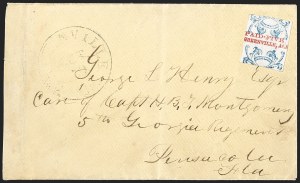 PAID-FIVE
GREENVILLE, ALA
George L Henry Esqr
Care of Capt H. B. T. Montgomery
5th Georgia Regiment
Pensacola
Fla